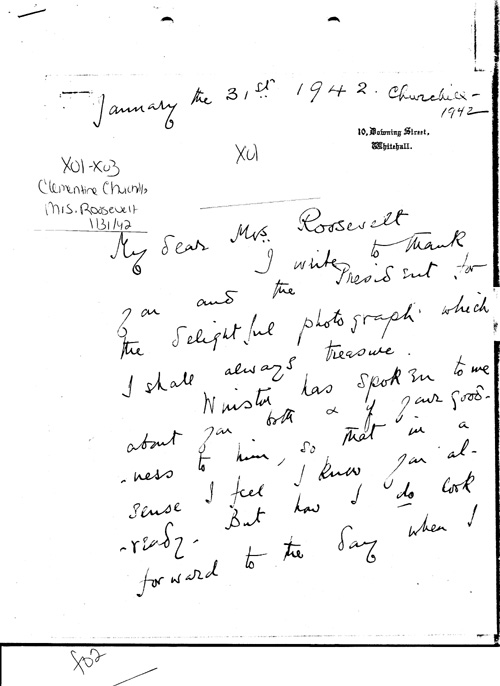 January the 31st 1942.
Churchill-
1942
10, Downing Street,
Whitehall.
XU1
XU1-XU3
Clementine Churchill
Mrs. Roosevelt
1/31/42
My dear Mrs. Roosevelt
I write to thank
you and the President for
the delightful photograph which
I shall always treasure.
Winston has spoken to me
about you both & of your good-
-ness to him, so that in a
sense I feel I know you al-
-ready. But how I do look
forward to the day when I